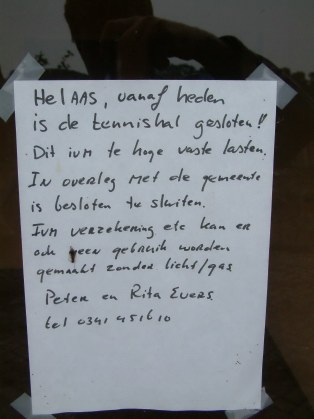 HelAAS, vanaf heden
is de tennishal gesloten!!
Dit ivm te hoge vaste lasten.
In overleg met de gemeente
is besloten te sluiten.
Ivm verzekering etc kan er
ook geen gebruik worden
gemaakt zonder licht/gas
Peter en Rita Evers
tel 0341 451610